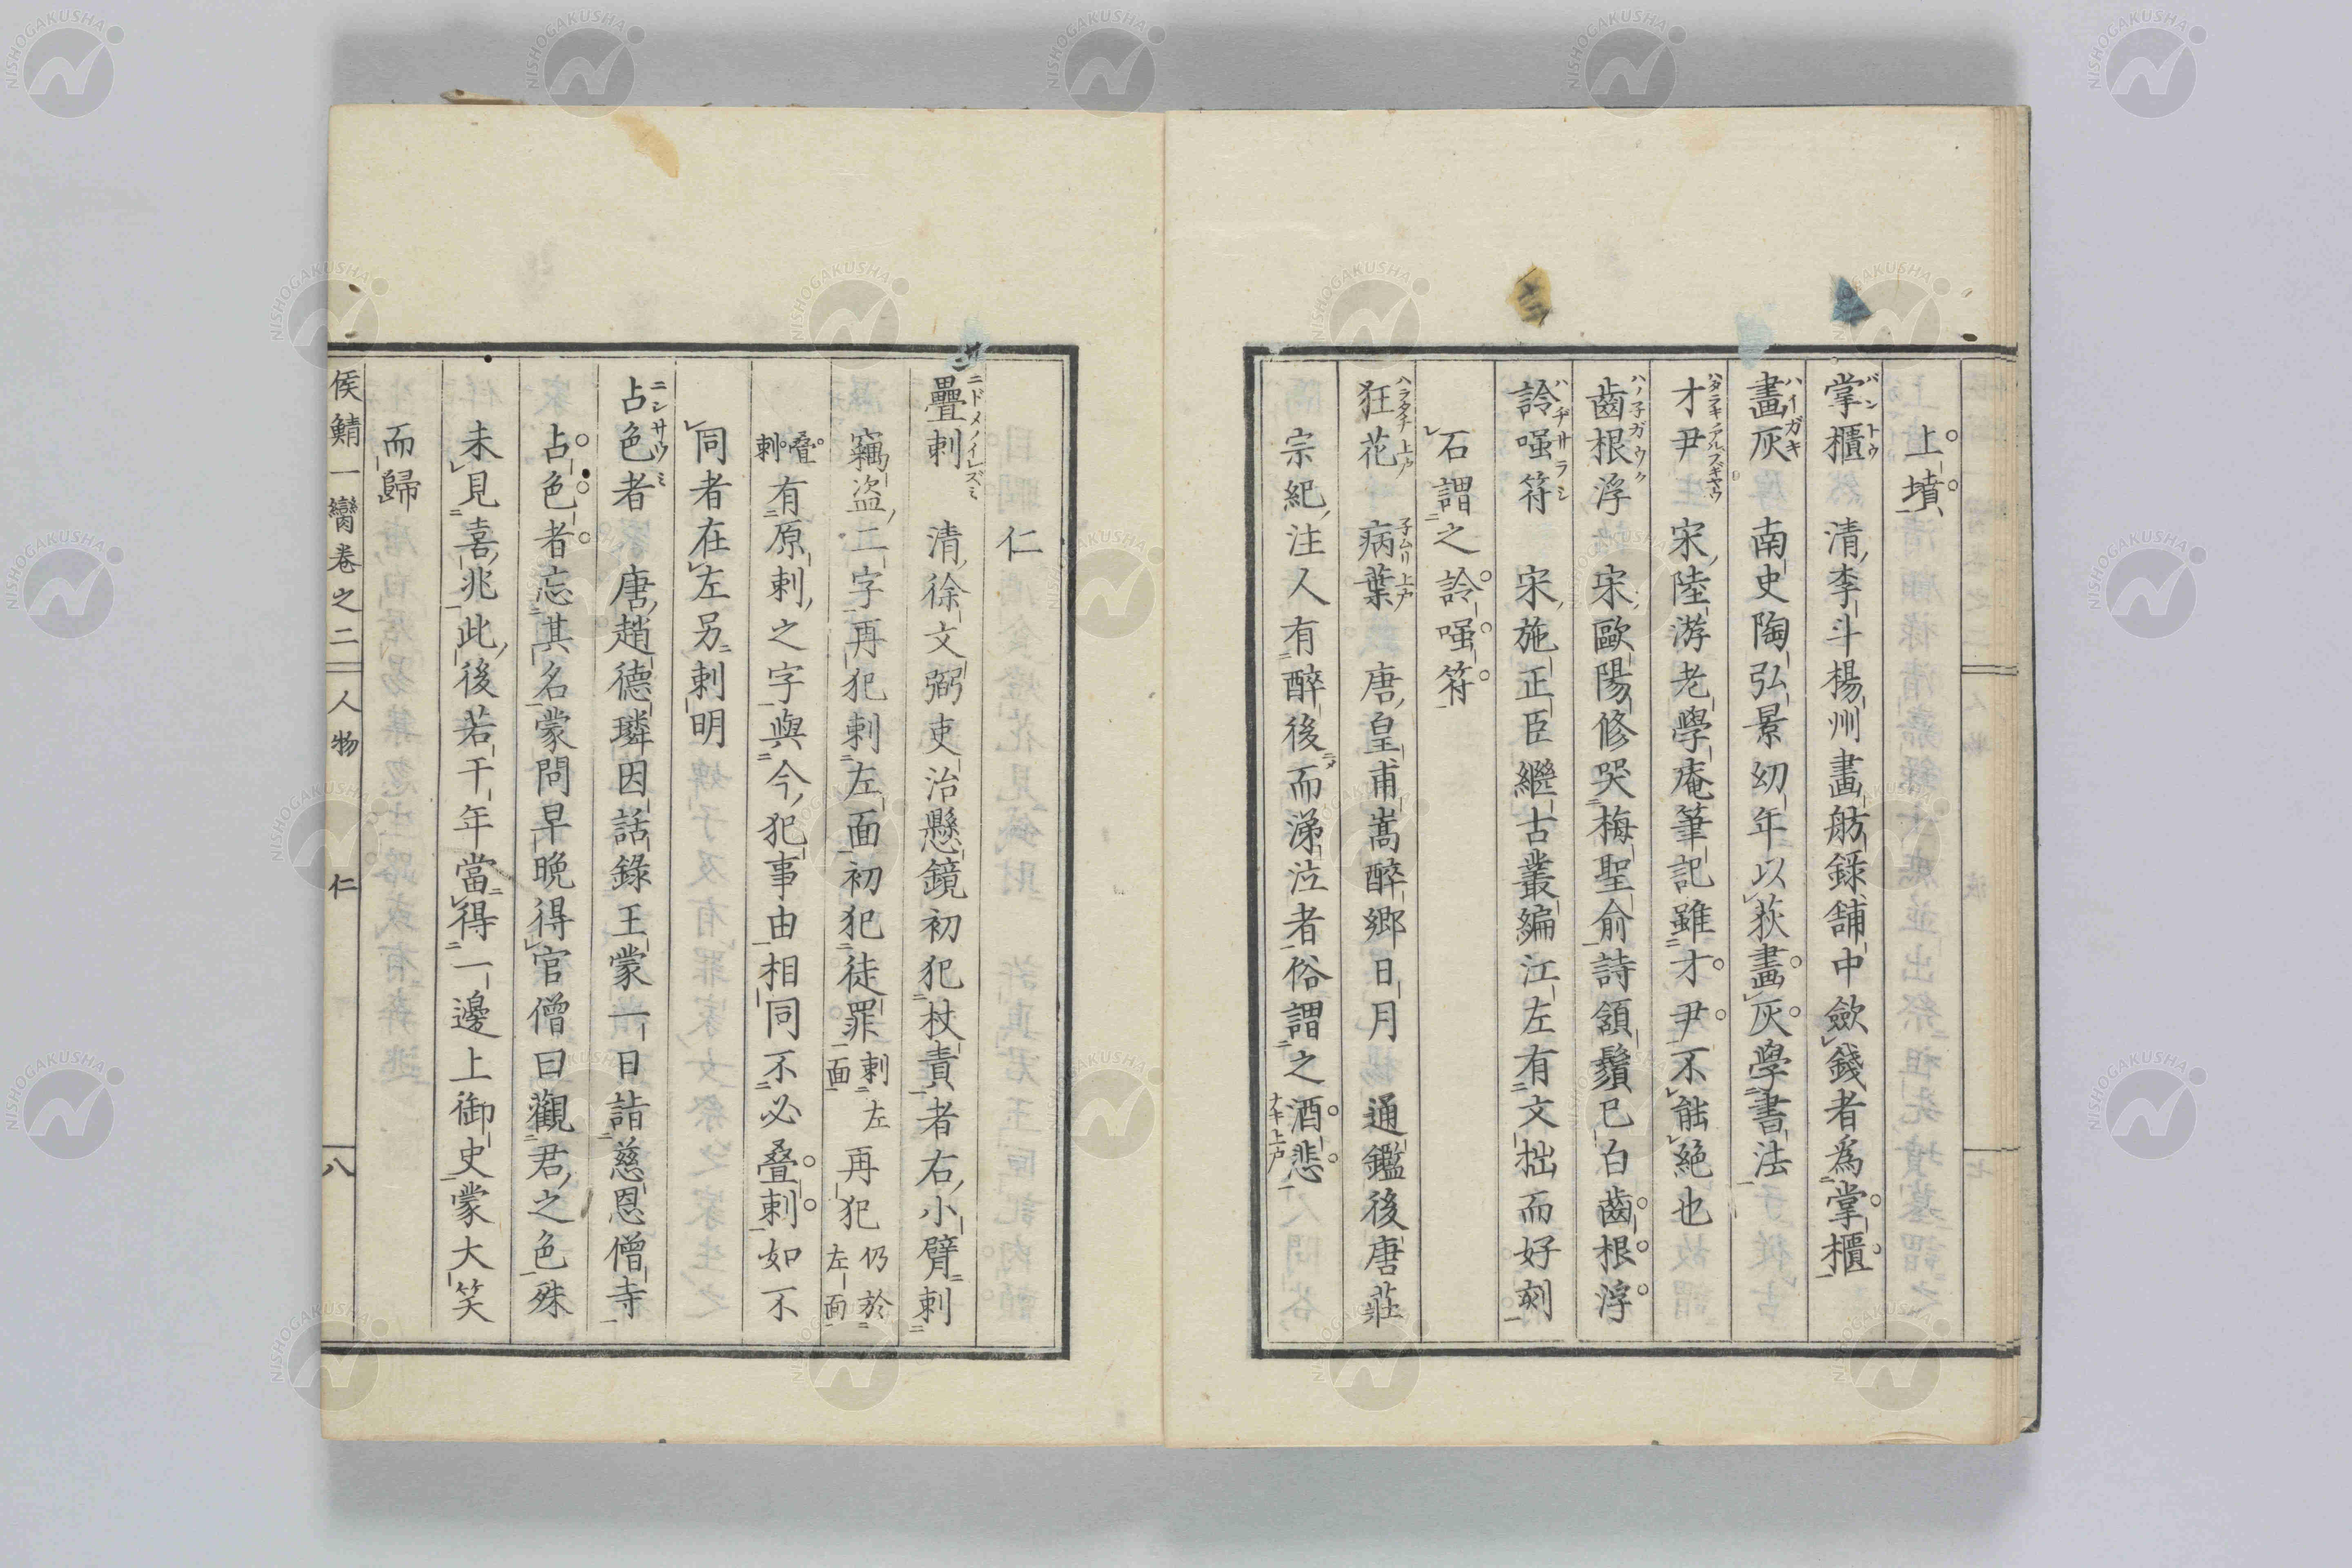 上墳
掌櫃　清李斗楊州畫舫錄舖中歛錢者為掌櫃
バントウ
畫灰　南史陶弘景幼年以荻畫灰學書法
ハイガキ
才尹　宋陸游老學庵筆記雖才尹不能絶也
齒根浮　宋歐陽修哭梅聖俞詩頷鬚已白齒根浮
詅嗤符　宋施正臣繼古叢編江左有文拙而好刻
ハヂサラシ
石謂之詅嗤符
狂花　病葉　唐皇甫嵩醉鄉日月　通鑑後唐莊
ハラタチ上戸　子ムリ上戸
宗紀注人有醉後而涕泣者俗謂之酒悲
ナキ上戸
仁
疊刺　清徐文弼吏治懸鏡初犯杖責者右小臂刺
ニドメノイレズミ
竊盗二字再犯刺左面初犯徒罪刺左面再犯仍於左面
叠刺有原刺之字與今犯事由相同不必叠刺如不
同者在左另刺明
占色者　唐趙德璘因話錄王蒙一日詣慈恩僧寺
ニンサウミ
占色者忘其名蒙問早晩得官僧曰觀君之色殊
未見喜兆此後若干年當得一邊上御史蒙大笑
而歸
侯鯖一臠卷之二　人物　仁　八